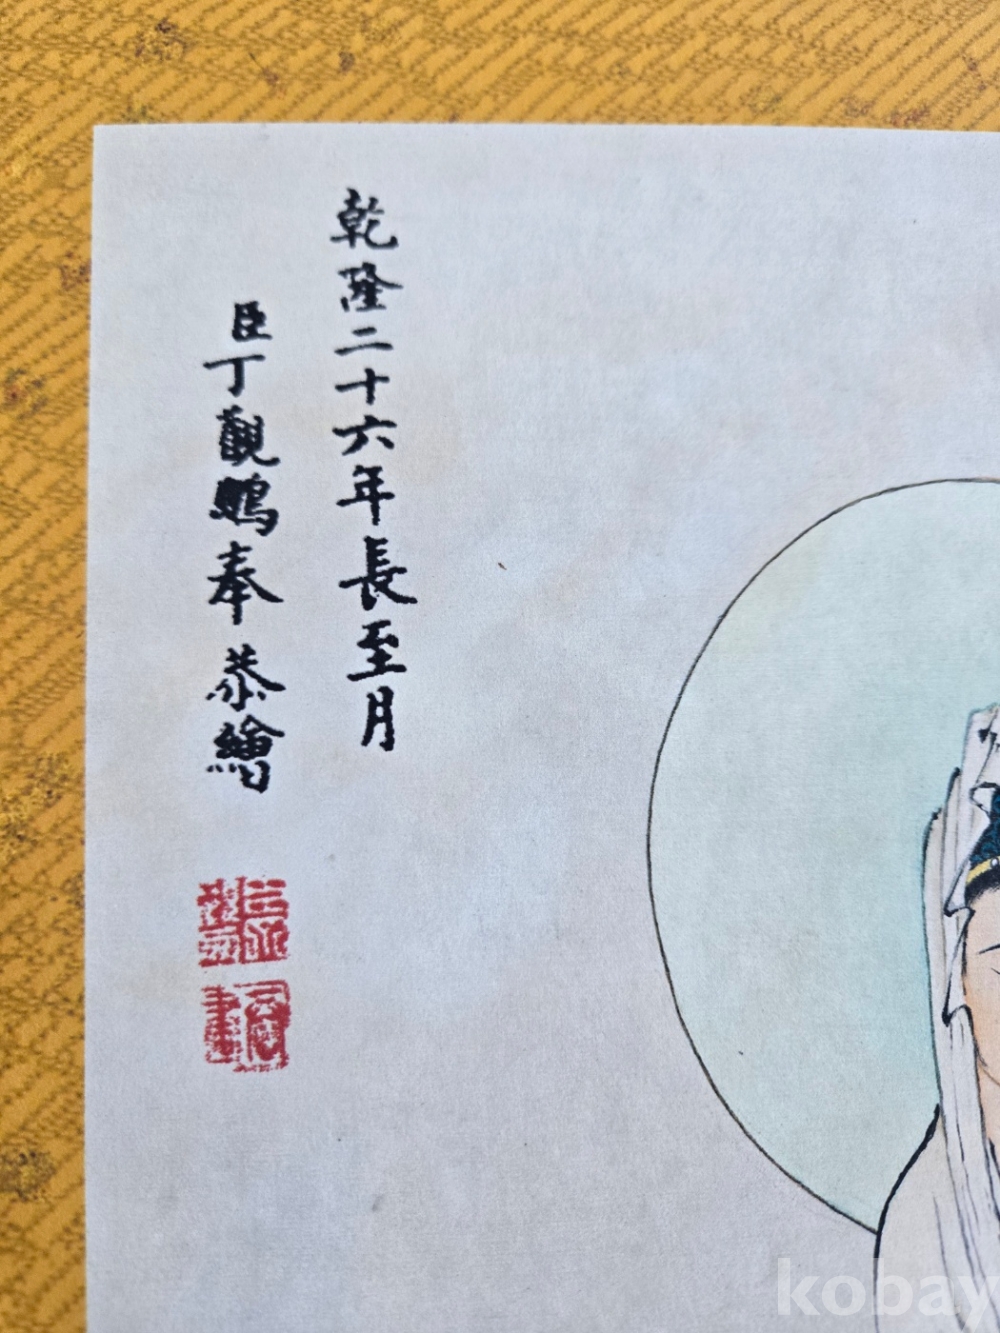 乾隆二十六年長至月
臣丁觀鵬奉恭繪
kobay